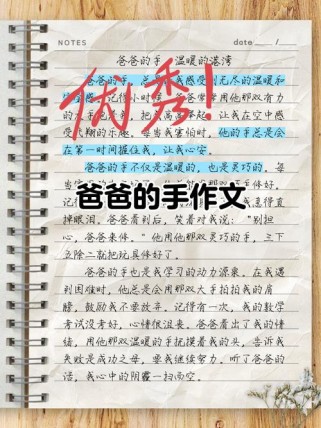 NOTES
date
爸爸的手 温暖的港湾
爸爸的手，总 我感受到无尽的温暖和
优秀!
记得小时 爸爸常常用他那双有力
的大手把 把我高高举起，让我在空中感
受飞翔的乐趣。每当我害怕时，他的手总是会
在第一时间握住我，让我心安。
爸爸的手不仅是温暖的，也是灵巧的。每
修好。
爸爸的手作文
记得 急得直
掉眼泪。爸爸看到后，笑着对我说：“别担
心，爸爸来修。”他用他那双灵巧的手，三下
五除二就把玩具修好了。
爸爸的手也是我学习的动力源泉。在我遇
到困难时，他总是会用那双大手拍拍我的肩
膀，鼓励我不要放弃。记得有一次，我的数学
考试没考好，心情很沮丧。爸爸看出了我的情
绪，用他那双温暖的手抚摸着我的头，告诉我
失败是成功之母，要我继续努力。听了爸爸的
话，我心中的阴霾一扫而空。